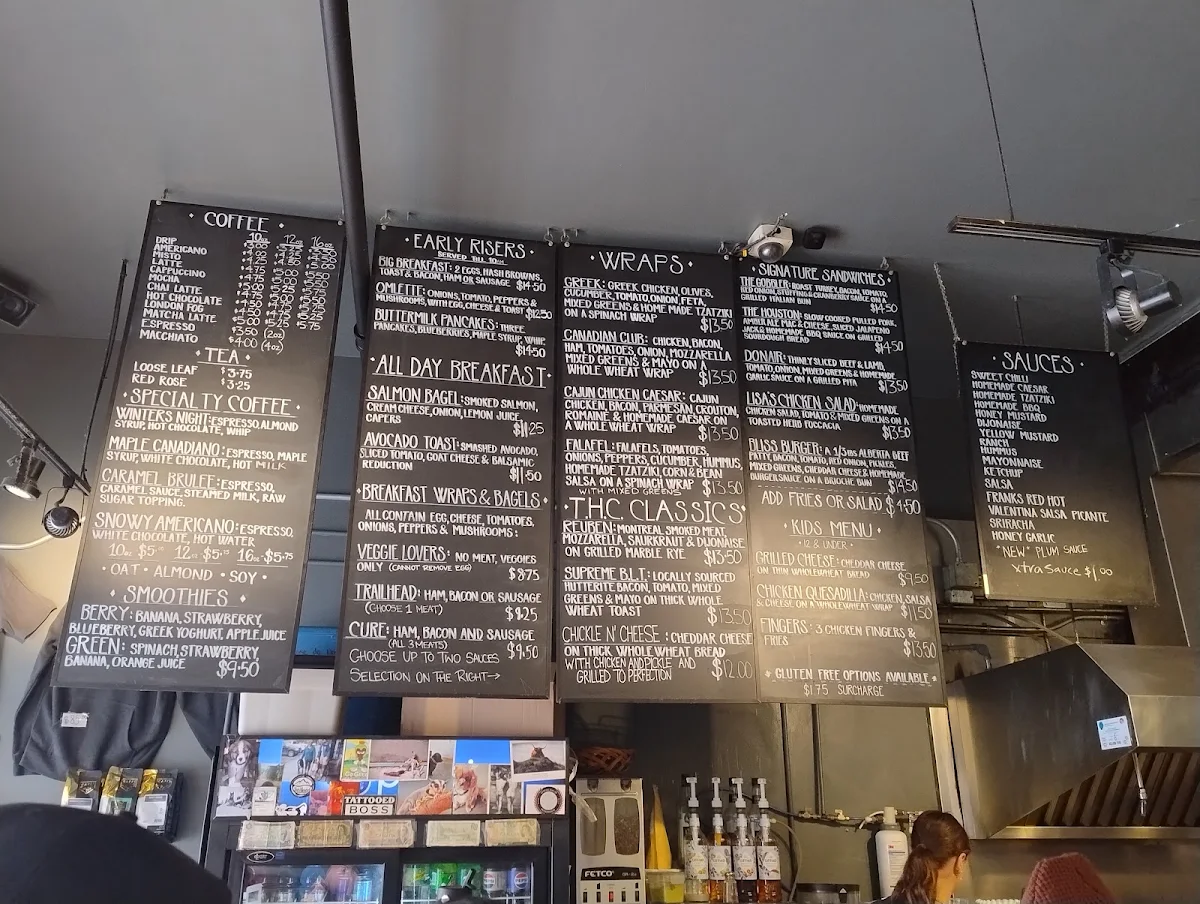 • COFFEE •
10oz 12oz 16oz
DRIP
AMERICANO
MISTO
LATTE
CAPPUCCINO
MOCHA
CHAI LATTE
HOT CHOCOLATE
LONDON FOG
MATCHA LATTE
ESPRESSO $3.50 (2oz)
MACCHIATO $4.00 (4oz)
• TEA •
LOOSE LEAF $3.75
RED ROSE $3.25
• SPECIALTY COFFEE •
WINTERS NIGHT: ESPRESSO, ALMOND
SYRUP, HOT CHOCOLATE, WHIP
MAPLE CANADIANO: ESPRESSO, MAPLE
SYRUP, WHITE CHOCOLATE, HOT MILK
CARAMEL BRULEE: ESPRESSO,
CARAMEL SAUCE, STEAMED MILK, RAW
SUGAR TOPPING.
SNOWY AMERICANO: ESPRESSO,
WHITE CHOCOLATE, HOT WATER
10oz 12oz 16oz $5.75
• OAT • ALMOND • SOY •
• SMOOTHIES •
BERRY: BANANA, STRAWBERRY,
BLUEBERRY, GREEK YOGHURT, APPLE JUICE
GREEN: SPINACH, STRAWBERRY,
BANANA, ORANGE JUICE $9.50
• EARLY RISERS •
SERVED TILL
BIG BREAKFAST: 2 EGGS, HASH BROWNS,
TOAST & BACON, HAM OR SAUSAGE $14.50
OMLETTE: ONIONS, TOMATO, PEPPERS &
MUSHROOMS, WITH EGG, CHEESE & TOAST $12.50
BUTTERMILK PANCAKES: THREE
PANCAKES, BLUEBERRIES, MAPLE SYRUP, WHIP
$14.50
• ALL DAY BREAKFAST •
SALMON BAGEL: SMOKED SALMON,
CREAM CHEESE, ONION, LEMON JUICE
CAPERS $11.25
AVOCADO TOAST: SMASHED AVOCADO,
SLICED TOMATO, GOAT CHEESE & BALSAMIC
REDUCTION $11.50
• BREAKFAST WRAPS & BAGELS •
ALL CONTAIN EGG, CHEESE, TOMATOES,
ONIONS, PEPPERS & MUSHROOMS:
VEGGIE LOVERS: NO MEAT, VEGGIES
ONLY (CANNOT REMOVE EGG) $8.75
TRAILHEAD: HAM, BACON OR SAUSAGE
(CHOOSE 1 MEAT) $9.25
CURE: HAM, BACON AND SAUSAGE
(ALL 3 MEATS) $9.50
CHOOSE UP TO TWO SAUCES
SELECTION ON THE RIGHT→
• WRAPS •
GREEK: GREEK CHICKEN, OLIVES,
CUCUMBER, TOMATO, ONION, FETA,
MIXED GREENS & HOME MADE TZATZIKI
ON A SPINACH WRAP $13.50
CANADIAN CLUB: CHICKEN, BACON,
HAM, TOMATOES, ONION, MOZZARELLA
MIXED GREENS & MAYO ON A
WHOLE WHEAT WRAP $13.50
CAJUN CHICKEN CAESAR: CAJUN
CHICKEN, BACON, PARMESAN, CROUTON,
ROMAINE & HOMEMADE CAESAR ON
A WHOLE WHEAT WRAP $13.50
FALAFEL: FALAFELS, TOMATOES,
ONIONS, PEPPERS, CUCUMBER, HUMMUS,
HOMEMADE TZATZIKI, CORN & BEAN
SALSA ON A SPINACH WRAP $13.50
WITH MIXED GREENS
• T.H.C. CLASSICS •
REUBEN: MONTREAL SMOKED MEAT,
MOZZARELLA, SAURKRAUT & DIJONAISE
ON GRILLED MARBLE RYE $13.50
SUPREME B.L.T.: LOCALLY SOURCED
HUTTERITE BACON, TOMATO, MIXED
GREENS & MAYO ON THICK WHOLE
WHEAT TOAST $13.50
CHICKLE N' CHEESE: CHEDDAR CHEESE
ON THICK WHOLE WHEAT BREAD
WITH CHICKEN AND PICKLE AND
GRILLED TO PERFECTION $12.00
• SIGNATURE SANDWICHES •
THE GOBBLER: ROAST TURKEY, BACON, TOMATO,
RED ONION, STUFFING & CRANBERRY SAUCE ON A
GRILLED ITALIAN BUN $14.50
THE HOUSTON: SLOW COOKED PULLED PORK,
AMBER ALE MAC & CHEESE, SLICED JALAPENO
JACK & HOMEMADE BBQ SAUCE ON GRILLED
SOURDOUGH BREAD $14.50
DONAIR: THINLY SLICED BEEF & LAMB,
TOMATO, ONION, MIXED GREENS & HOMEMADE
GARLIC SAUCE ON A GRILLED PITA $13.50
LISA'S CHICKEN SALAD: HOMEMADE
CHICKEN SALAD, TOMATO & MIXED GREENS ON A
TOASTED HERB FOCCACIA $13.50
BLISS BURGER: A 1/3 LBS ALBERTA BEEF
PATTY, BACON, TOMATO, RED ONION, PICKLES,
MIXED GREENS, CHEDDAR CHEESE & HOMEMADE
BURGER SAUCE ON A BRIOCHE BUN $14.50
ADD FRIES OR SALAD $4.50
• KIDS MENU •
• 12 & UNDER •
GRILLED CHEESE: CHEDDAR CHEESE
ON THIN WHOLEWHEAT BREAD $9.50
CHICKEN QUESADILLA: CHICKEN, SALSA
& CHEESE ON A WHOLEWHEAT WRAP $11.50
FINGERS: 3 CHICKEN FINGERS &
FRIES $13.50
* GLUTEN FREE OPTIONS AVAILABLE *
$1.75 SURCHARGE
• SAUCES •
SWEET CHILI
HOMEMADE CAESAR
HOMEMADE TZATZIKI
HOMEMADE BBQ
HONEY MUSTARD
DIJONAISE
YELLOW MUSTARD
RANCH
HUMMUS
MAYONNAISE
KETCHUP
SALSA
FRANKS RED HOT
VALENTINA SALSA PICANTE
SRIRACHA
HONEY GARLIC
"NEW" PLUM SAUCE
xtra Sauce $1.00
TATTOOED
BOSS
FETCO